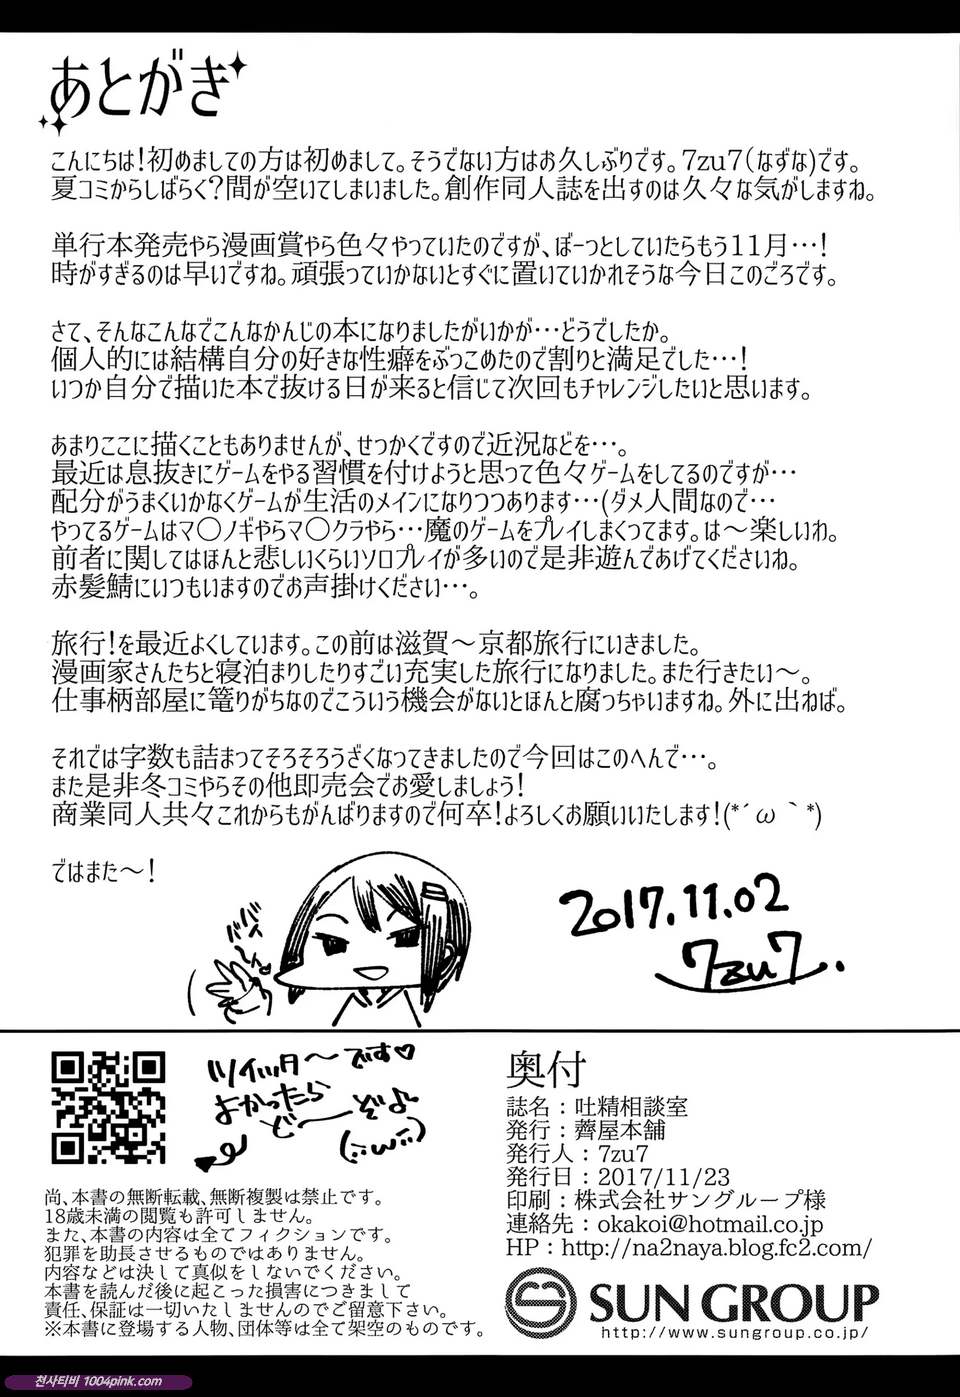 あとがき
こんにちは!初めましての方は初めまして。そうでない方はお久しぶりです。7zu7(なずな)です。
夏コミからしばらく?間が空いてしまいました。創作同人誌を出すのは久々な気がしますね。
単行本発売やら漫画賞やら色々やっていたのですが、ぼーっとしていたらもう11月…!
時がすぎるのは早いですね。頑張っていかないとすぐに置いていかれそうな今日このごろです。
さて、そんなこんなでこんなかんじの本になりましたがいかが…どうでしたか。
個人的には結構自分の好きな性癖をぶっこめたので割りと満足でした…!
いつか自分で描いた本で抜ける日が来ると信じて次回もチャレンジしたいと思います。
あまりここに描くこともありませんが、せっかくですので近況などを…。
最近は息抜きにゲームをやる習慣を付けようと思って色々ゲームをしてるのですが…
配分がうまくいかなくゲームが生活のメインになりつつあります…(ダメ人間なので…
やってるゲームはマ〇ノギやらマ〇クラやら…魔のゲームをプレイしまくってます。は～楽しいわ。
前者に関してはほんと悲しいくらいソロプレイが多いので是非遊んであげてくださいね。
赤髪鯖にいつもいますのでお声掛けください…。
旅行!を最近よくしています。この前は滋賀～京都旅行にいきました。
漫画家さんたちと寝泊まりしたりすごい充実した旅行になりました。また行きたい～。
仕事柄部屋に篭りがちなのでこういう機会がないとほんと腐っちゃいますね。外に出ねば。
それでは字数も詰まってそろそろうざくなってきましたので今回はこのへんで…。
また是非冬コミやらその他即売会でお愛しましょう!
商業同人共々これからもがんばりますので何卒!よろしくお願いいたします!(*´ω｀*)
ではまた～!
ババイ～ん
2017.11.02
7zu7.
ツイッター～です♡
よかったら
ど～ぞよ
(;;ω;;)
奥付
誌名:吐精相談室
発行:薺屋本舗
発行人:7zu7
発行日:2017/11/23
印刷:株式会社サングループ様
連絡先:okakoi@hotmail.co.jp
HP:http://na2naya.blog.fc2.com/
SUN GROUP
http://www.sungroup.co.jp/
尚、本書の無断転載、無断複製は禁止です。
18歳未満の閲覧も許可しません。
また、本書の内容は全てフィクションです。
犯罪を助長させるものではありません。
内容などは決して真似をしないでください。
本書を読んだ後に起こった損害につきまして
責任、保証は一切いたしませんのでご留意下さい。
※本書に登場する人物、団体等は全て架空のものです。
천사티비 1004pink.com